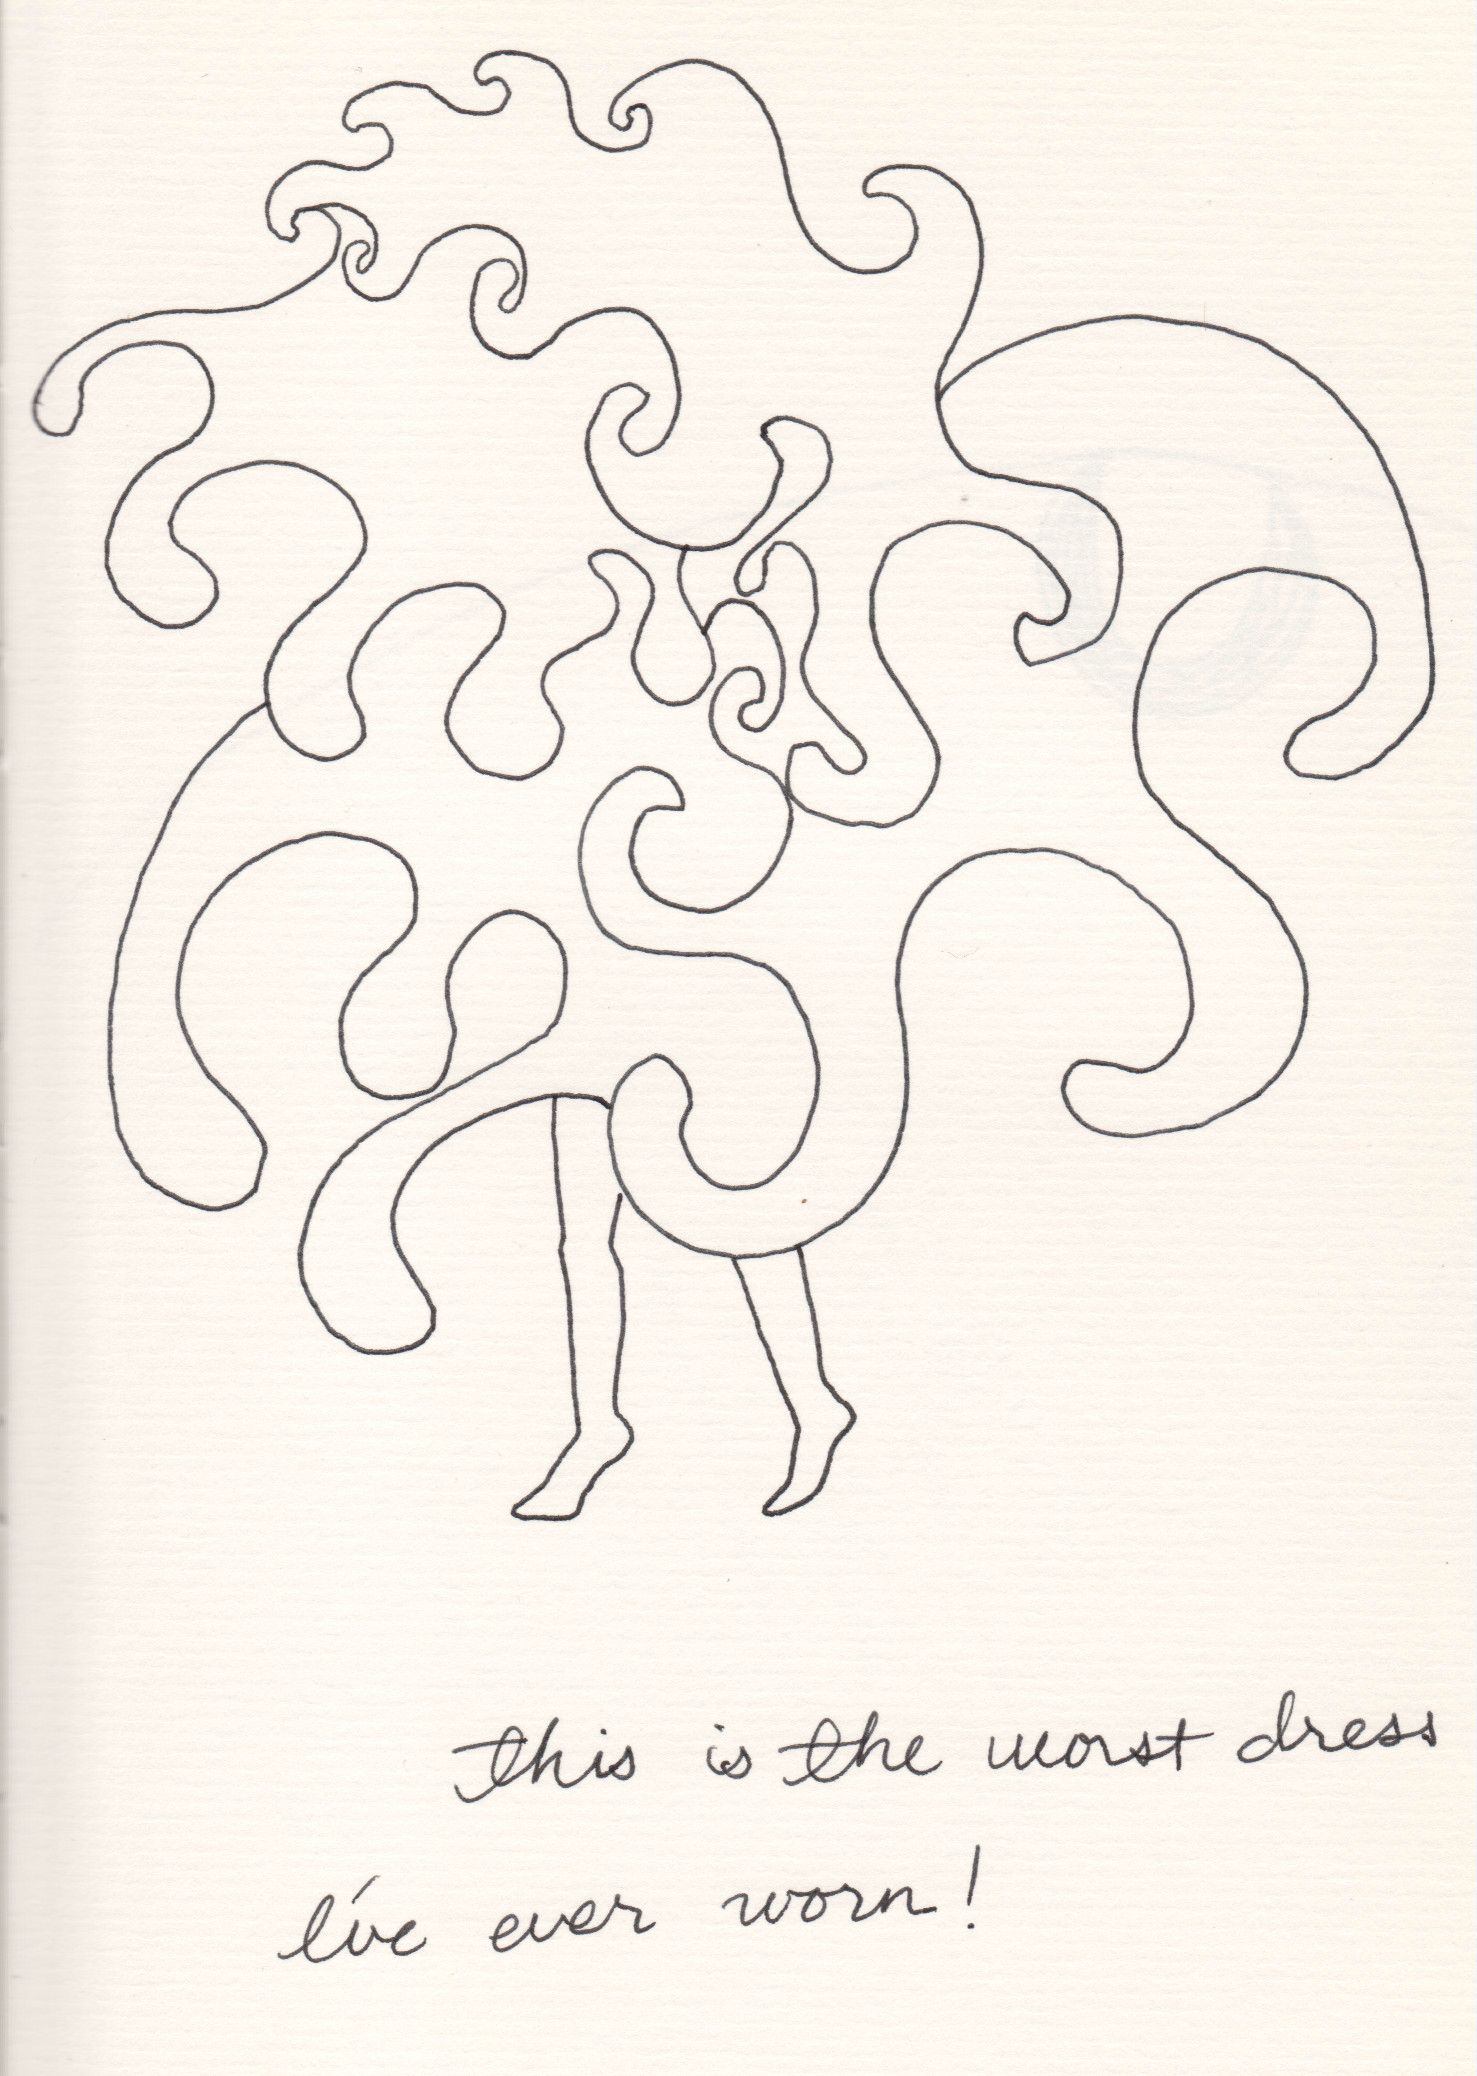 this is the worst dress
I've ever worn!